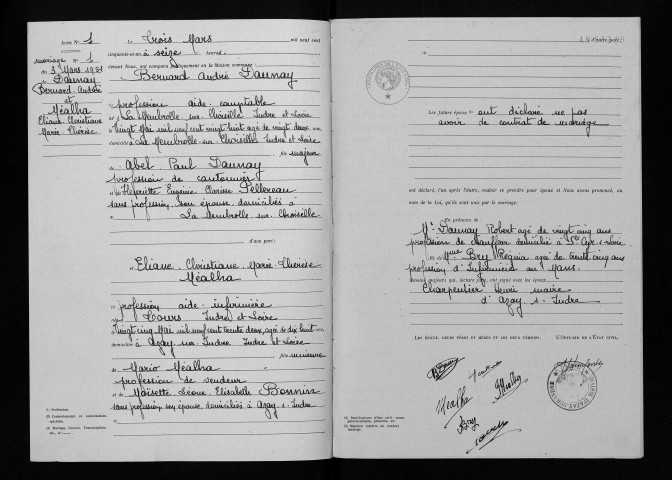 Acte N° 1
Mariage N° 1
du 3 Mars 1951
Daunay
Bernard-André
et
Méalha
Eliane-Christiane
Marie-Thérèse
Le Trois Mars mil neuf cent
cinquante-et-un à seize heures
devant Nous, ont comparu publiquement en la Maison commune :
Bernard André Daunay
profession aide-comptable
La Membrolle-sur-Choisille Indre et Loire
Vingt Mai mil neuf cent vingt huit agé de vingt deux ans
domicilié à La Membrolle-sur-Choisille Indre et Loire
fils majeur
de Abel Paul Daunay
profession de cantonnier
et de Henriette Eugénie Clarisse Pellereau
sans profession son épouse domiciliés à
La Membrolle-sur-Choisille
d'une part;
Eliane-Christiane-Marie-Thérèse
Méalha
profession aide-infirmière
Tours Indre et Loire
Vingt cinq Mai mil neuf cent trente deux, agée de dix huit ans
domiciliée à Azay-sur-Indre Indre et Loire
fille mineure
de Mario Méalha
profession de vendeur
et de Moisette Léone Elisabeth Bonnin
sans profession son épouse, domiciliés à Azay-s-Indre
(1) Profession.
(2) Consentements et autorisations,
(3) Mariage, Divorce, Transcription,
Les futurs époux ont déclaré ne pas
avoir de contrat de mariage
ont déclaré, l'un après l'autre, vouloir se prendre pour époux et Nous avons prononcé, au
nom de la Loi, qu'ils sont unis par le mariage.
En présence de :
Mr Daunay Robert agé de vingt cinq ans
profession de chauffeur domicilié à St Cyr-s-Loire
et Mme Bry Régina agée de trente cinq ans
profession d'Infirmière au Mans
témoins majeurs qui, lecture faite, ont signé avec les époux et
Charpentier Henri maire
d'Azay-s-Indre
LES ÉPOUX, LEURS PÈRES ET MÈRES ET LES DEUX TÉMOINS,
L'OFFICIER DE L'ÉTAT CIVIL,
Méalha